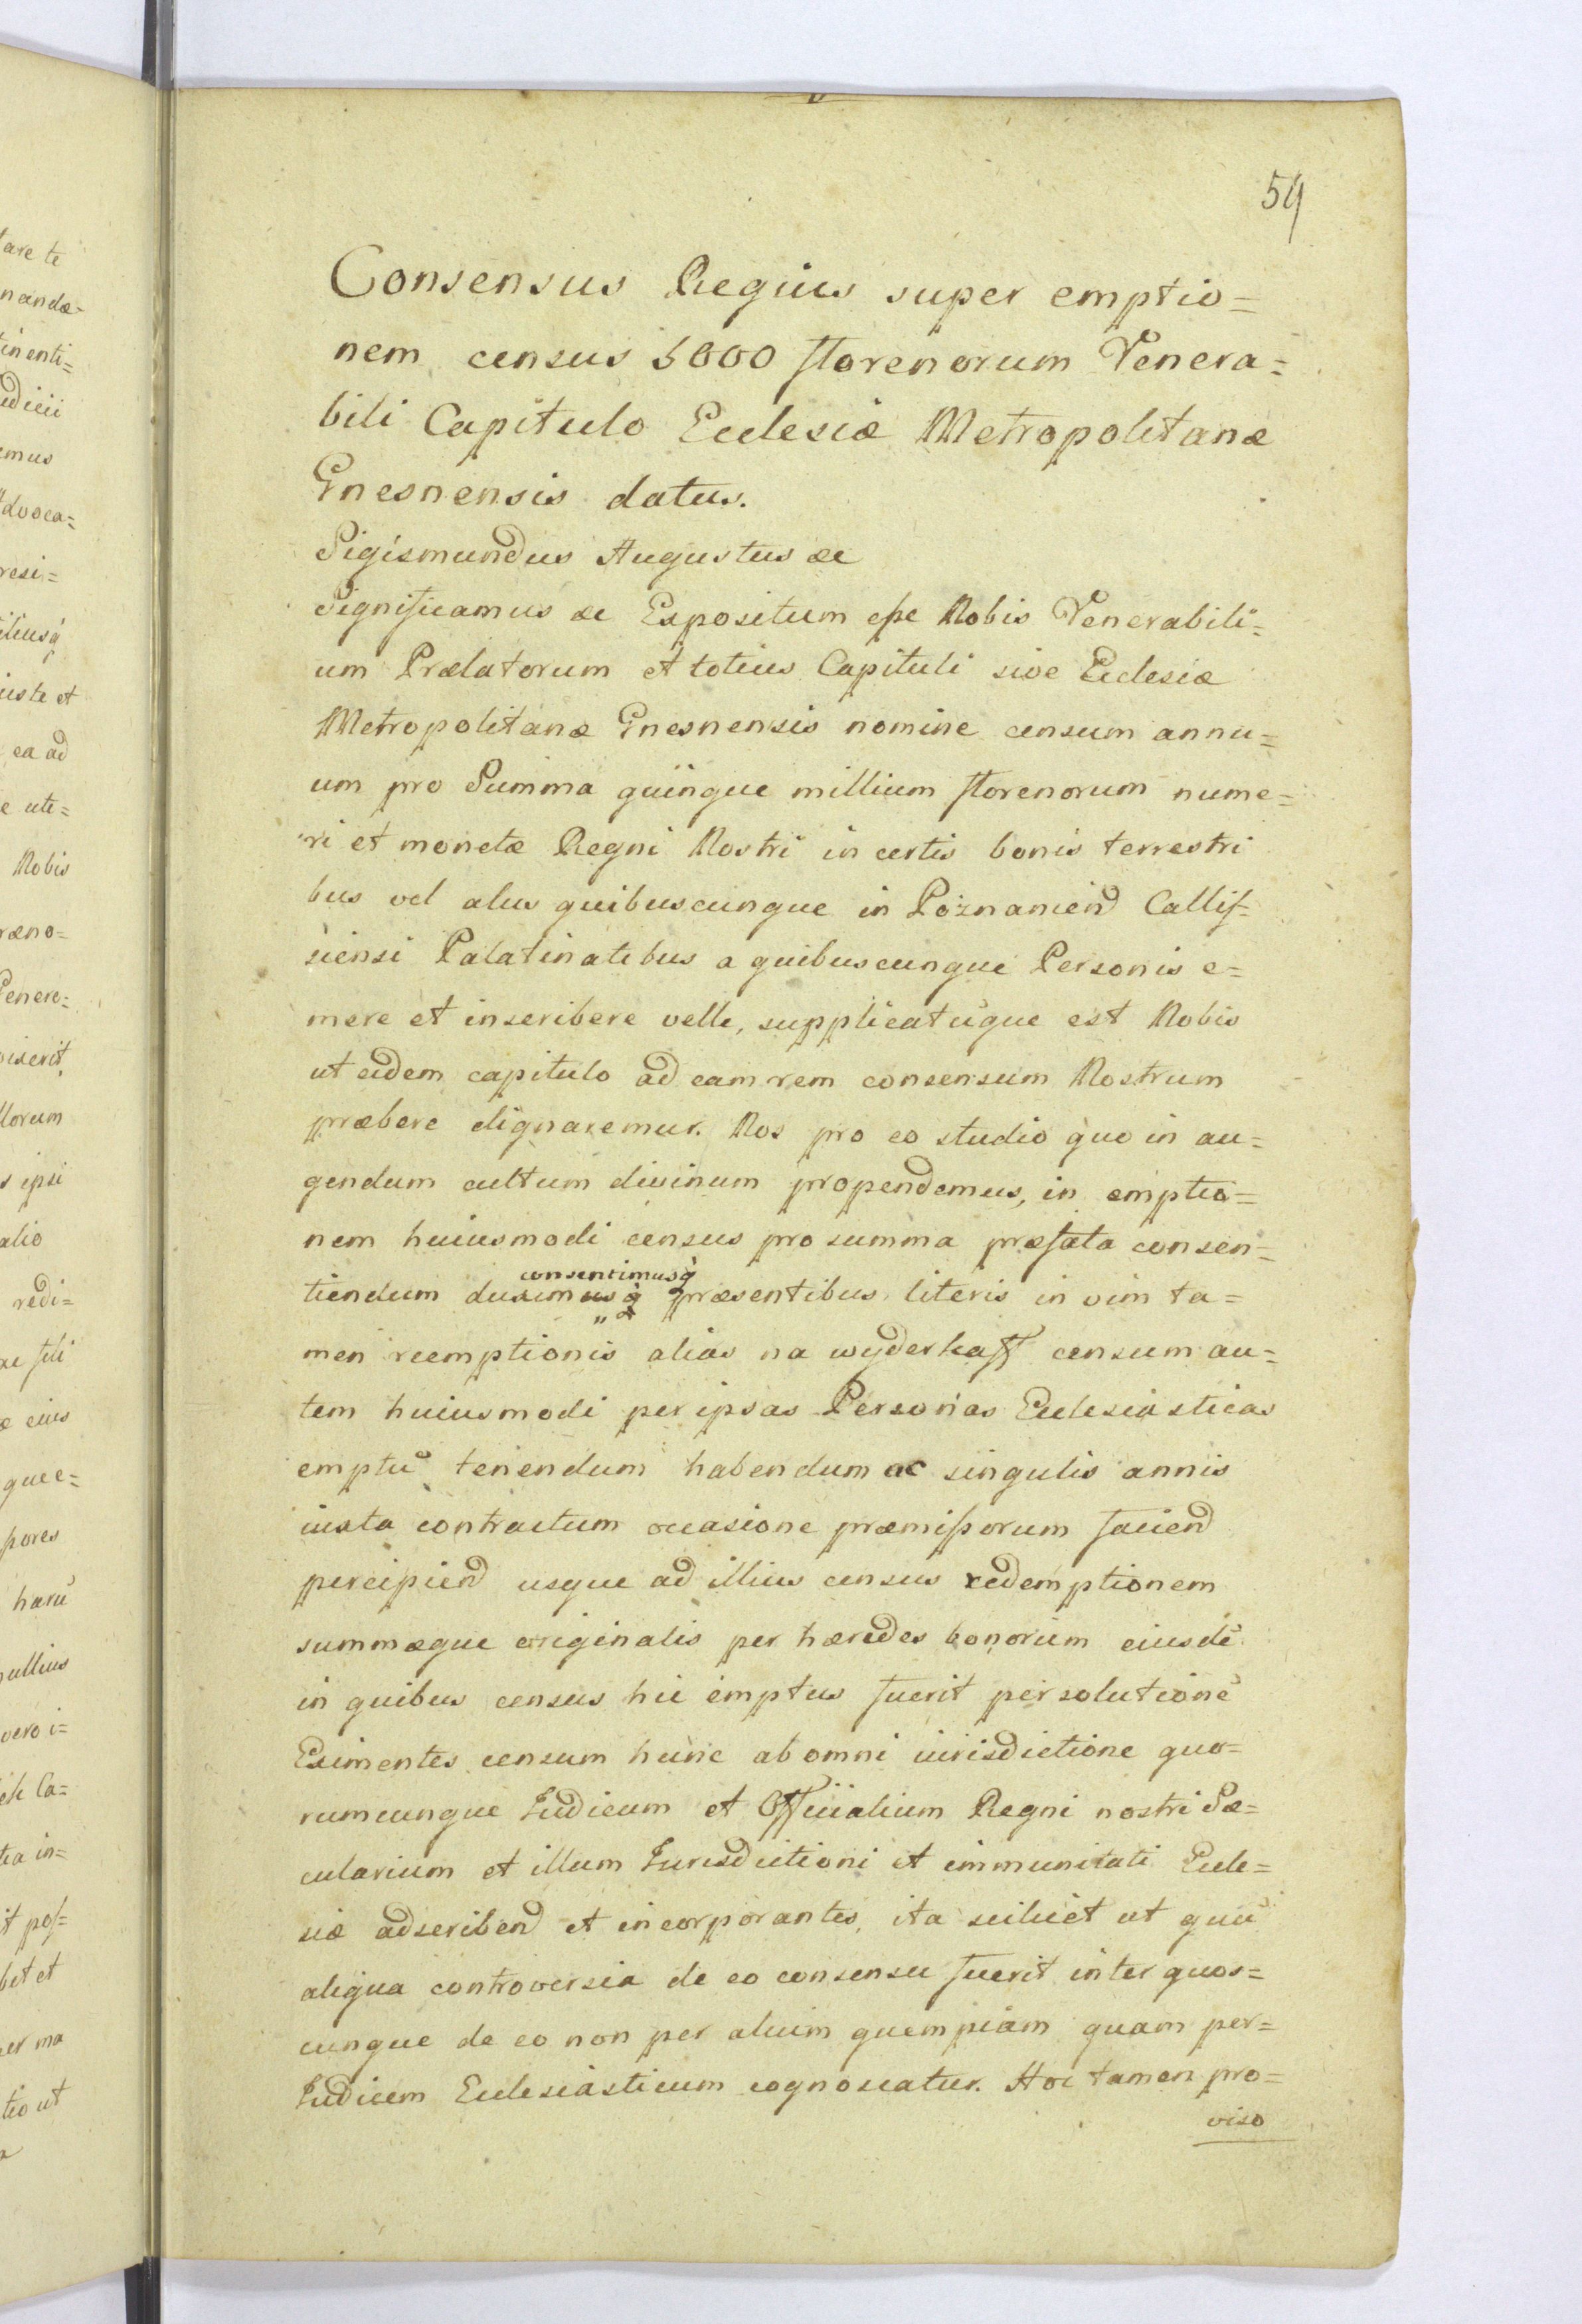 59
Consensus Regius super emptio=
nem census 5000 florenorum Venera=
bili Capitulo Ecclesiæ Metropolitanæ
Gnesnensis datus.
Sigismundus Augustus &c
Significamus &c Expositum esse Nobis Venerabili=
um Prælatorum et totius Capituli sive Ecclesiæ
Metropolitanæ Gnesnensis nomine censum annu=
um pro Summa quinque millium florenorum nume=
ri et monetæ Regni Nostri in certis bonis terrestri
bus vel aliis quibuscunque in Poznaniend Callis=
siensi Palatinatibus a quibuscunque Personis e=
mere et inscribere velle, supplicatūque est Nobis
ut eidem capitulo ad eam rem consensum Nostrum
præbere dignaremur. Nos pro eo studio quo in au=
gendum cultum divinum propendemus, in emptio=
nem huiusmodi census pro summa præfata consen=
consentimusq̀
tiendum duximus q̀ præsentibus literis in vim ta=
men reemptionis alias na wyderkaff censum au=
tem huiusmodi per ipsas Personas Ecclesiasticas
emptū tenendum habendum ac singulis annis
iuxta contractum occasione præmissorum faciend
percipiend usque ad illius census redemptionem
summæque originalis per hæredes bonorum eiusdē
in quibus census hic emptus fuerit persolutionē
Eximentes censum hunc ab omni iurisdictione quo=
rumcunque Iudicum et Officialium Regni nostri Sæ=
cularium et illum Iurisdictioni et immunitati Eccle=
siæ adscribend et incorporantes, ita scilicet ut quū
aliqua controversia de eo consensu fuerit inter quos=
cunque de eo non per alium quempiam quam per=
Iudicem Ecclesiasticum cognoscatur. Hoc tamen pro=
viso